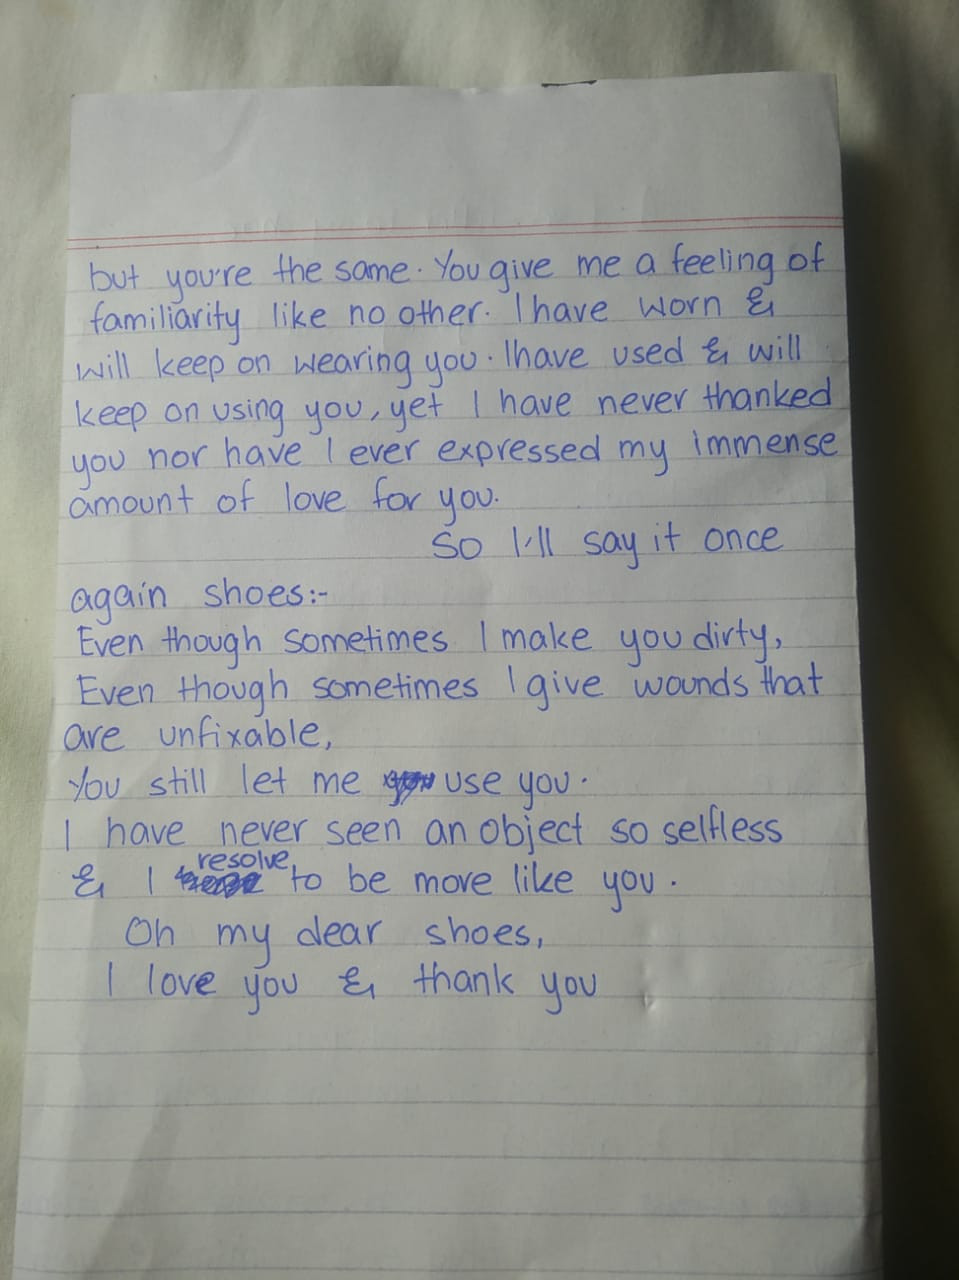 but you're the same. You give me a feeling of
familiarity like no other. I have worn &
will keep on wearing you. I have used & will
keep on using you, yet I have never thanked
you nor have I ever expressed my immense
amount of love for you.
So I'll say it once
again shoes:-
Even though sometimes I make you dirty,
Even though sometimes I give wounds that
are unfixable,
You still let me use you.
I have never seen an object so selfless
& I resolve to be more like you.
Oh my dear shoes,
I love you & thank you